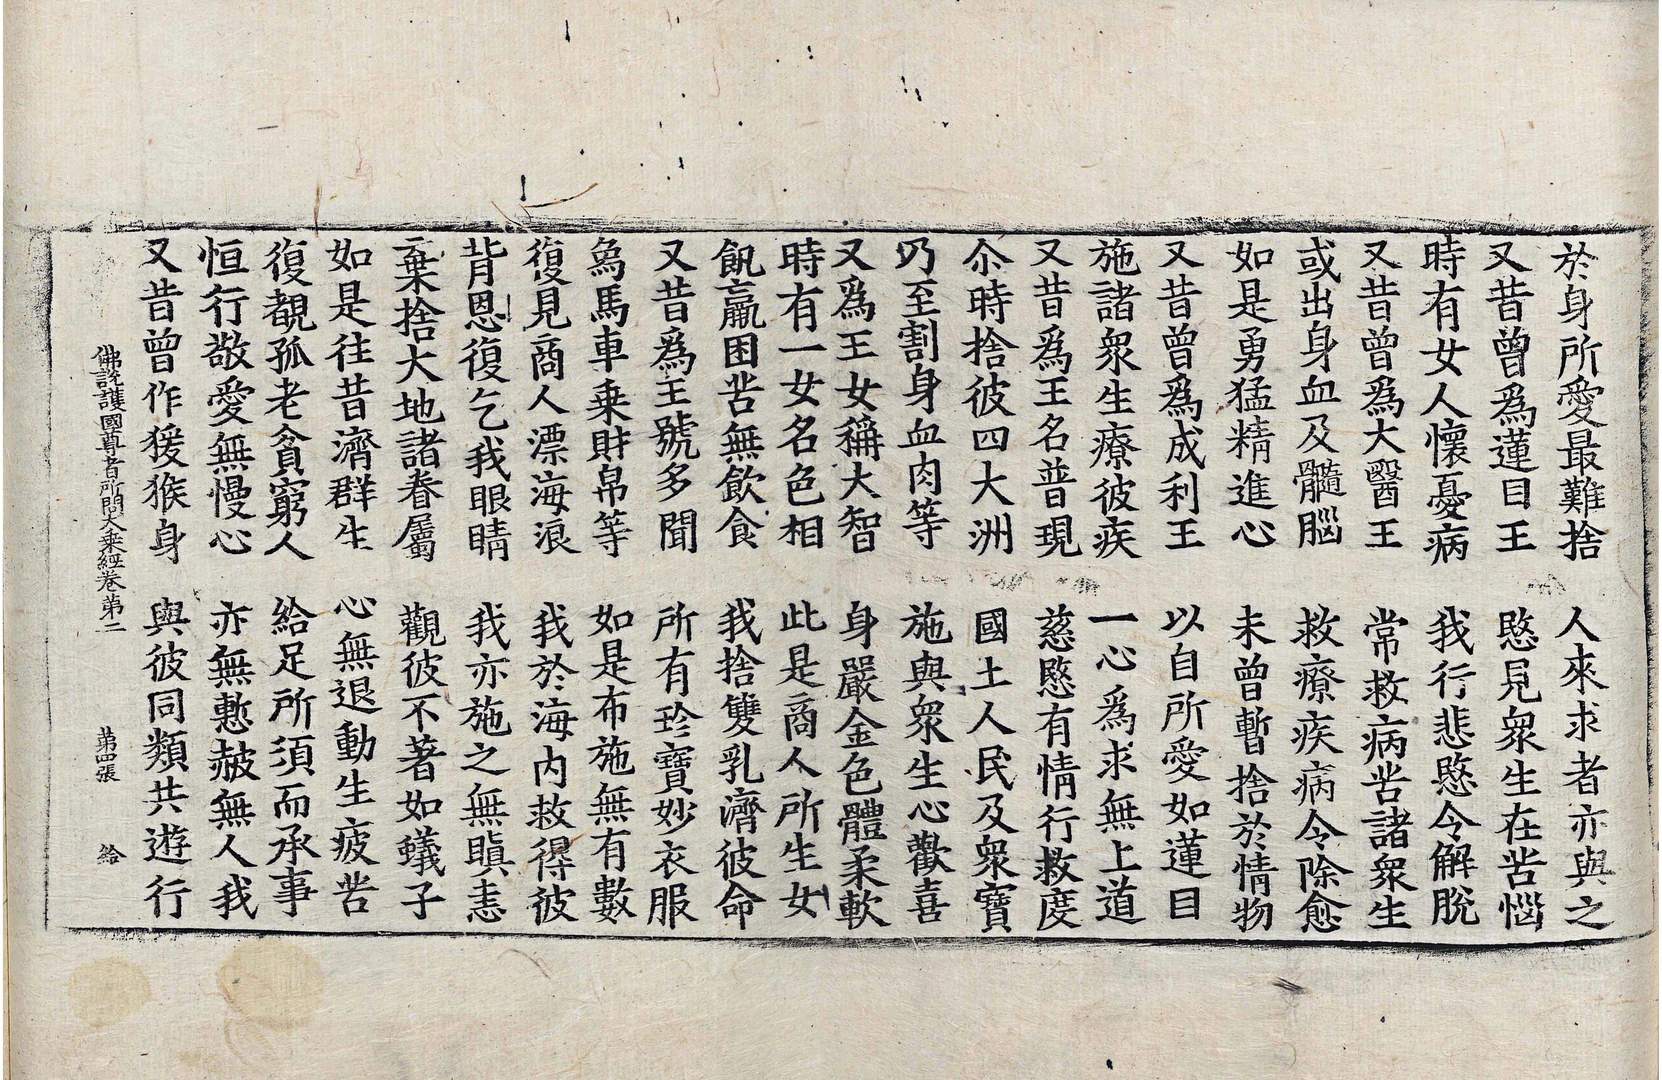 於身所愛最難捨　人來求者亦與之
又昔曾爲蓮目王　愍見衆生在苦惱
時有女人懷憂病　我行悲愍令解脫
又昔曾爲大醫王　常救病苦諸衆生
或出身血及髓腦　救療疾病令除愈
如是勇猛精進心　未曾暫捨於情物
又昔曾爲成利王　以自所愛如蓮目
施諸衆生療彼疾　一心爲求無上道
又昔爲王名普現　慈愍有情行救度
尒時捨彼四大洲　國土人民及衆寶
乃至割身血肉等　施與衆生心歡喜
又爲王女稱大智　身嚴金色體柔軟
時有一女名色相　此是商人所生女
飢羸困苦無飲食　我捨雙乳濟彼命
又昔爲王號多聞　所有珍寶妙衣服
象馬車乗財帛等　如是布施無有數
復見商人漂海浪　我於海內救得彼
背恩復乞我眼睛　我亦施之無瞋恚
棄捨大地諸眷屬　觀彼不著如蟻子
如是往昔濟群生　心無退動生疲苦
復覩孤老貧窮人　給足所須而承事
恒行敬愛無慢心　亦無慙赧無人我
又昔曾作猨猴身　與彼同類共遊行
佛說護國尊者所問大乗經卷第二　第四張　給